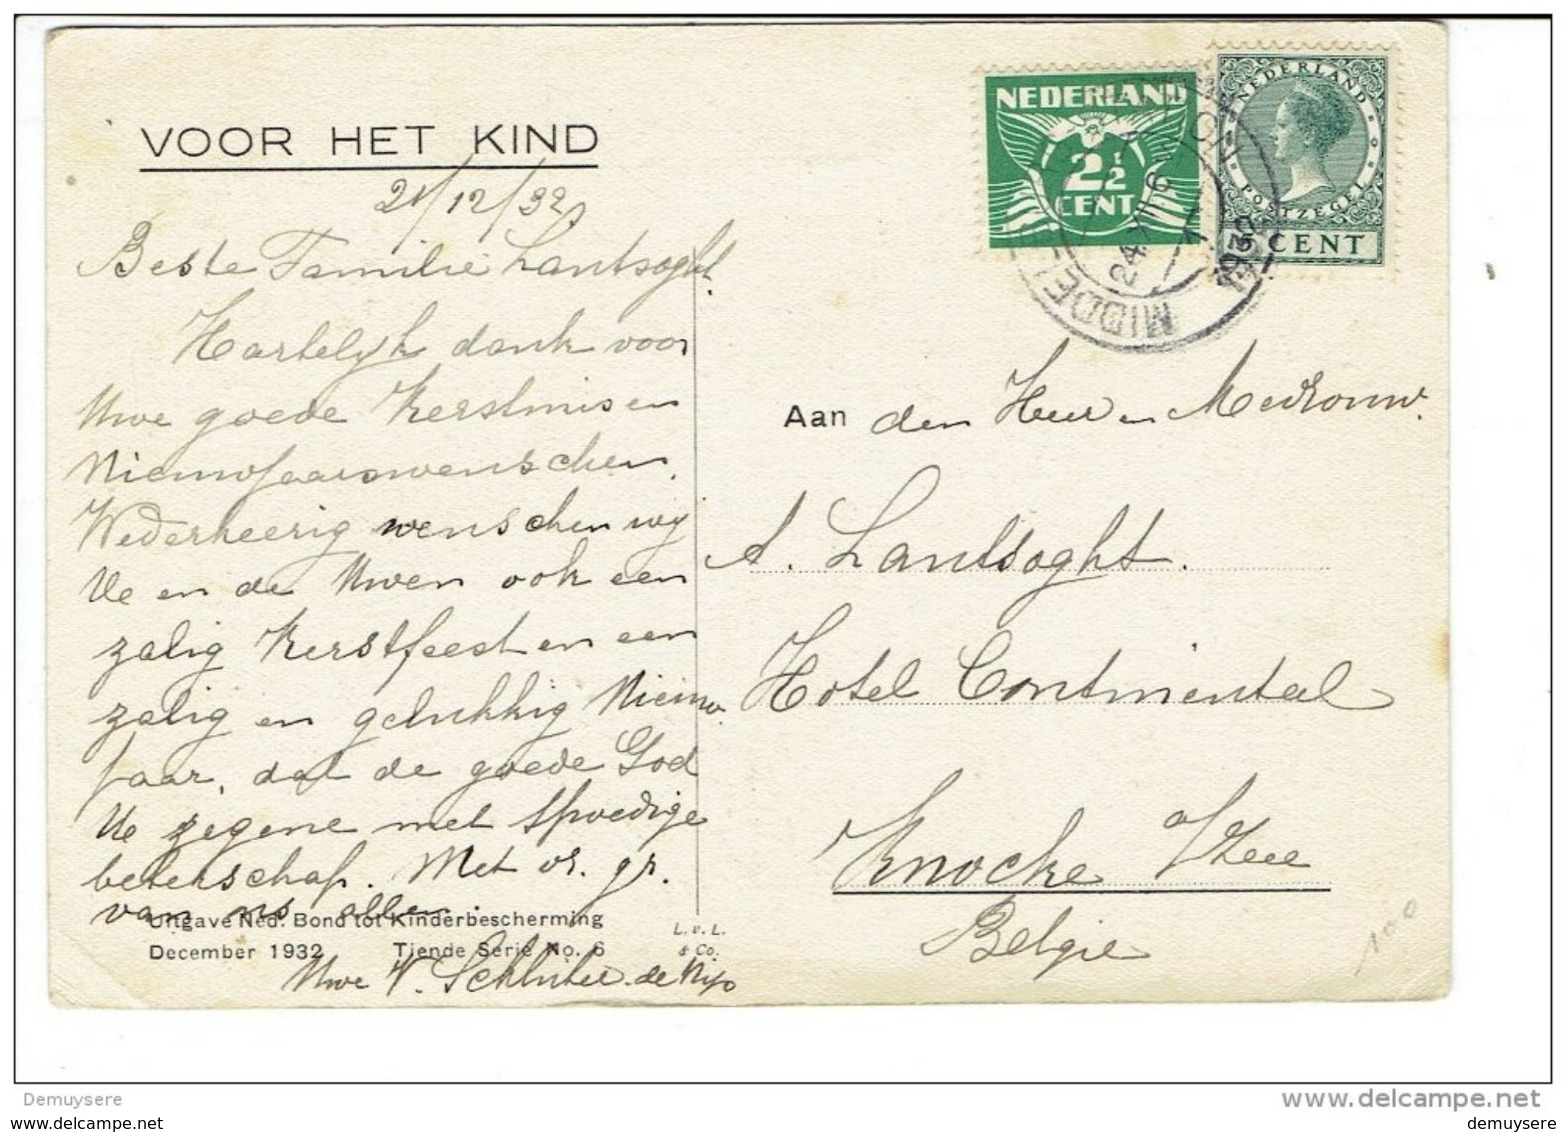 VOOR HET KIND
21/12/32
Beste Familie Lantsoght.
Hartelijk dank voor
Uwe goede Kerstmis en
Nieuwjaarswenschen.
Wederkeerig wenschen wij
Ue en de Uwen ook een
zalig Kerstfeest en een
zalig en gelukkig Nieuw.
jaar, dat de goede God
Ue zegene met spoedige
beterschap. Met vr. gr.
van ons allen.
Uitgave Ned. Bond tot Kinderbescherming
December 1932 Tiende Serie No. 6
Uwe V. Schluter. de
L. v. L.
& Co.
NEDERLAND
2½
CENT
NEDERLAND
POSTZEGEL
CENT
MIDDE
24 XII 6
1930
Aan den Heer en Mevrouw.
A. Lantsoght.
Hotel Continental
Knocke s/Zee
België
100
Demuysere
www.delcampe.net
demuysere